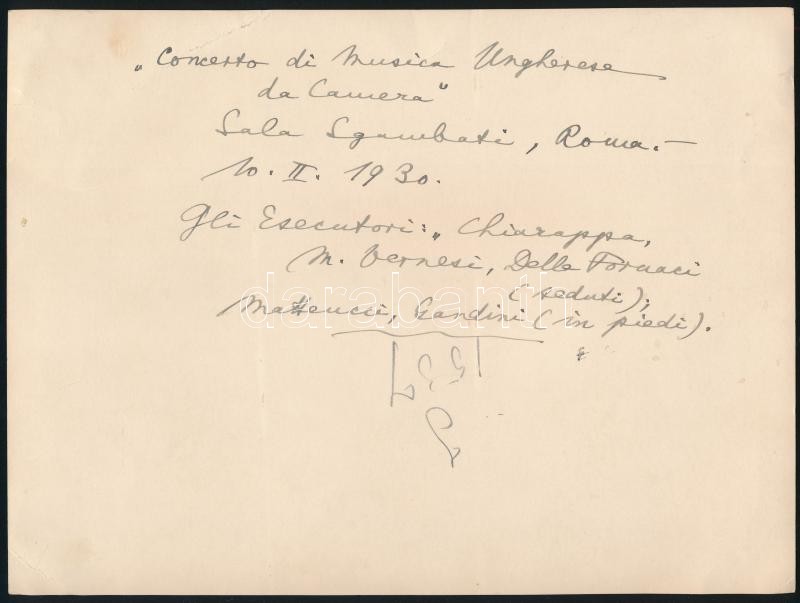 „Concerto di Musica Ungherese
da Camera"
Sala Sgambati, Roma.—
10. II. 1930.
Gli Esecutori: „Chiarappa,
M. Vernesi, Delle Fornaci
(seduti);
Matteucci, Gandini (in piedi).
darabanth